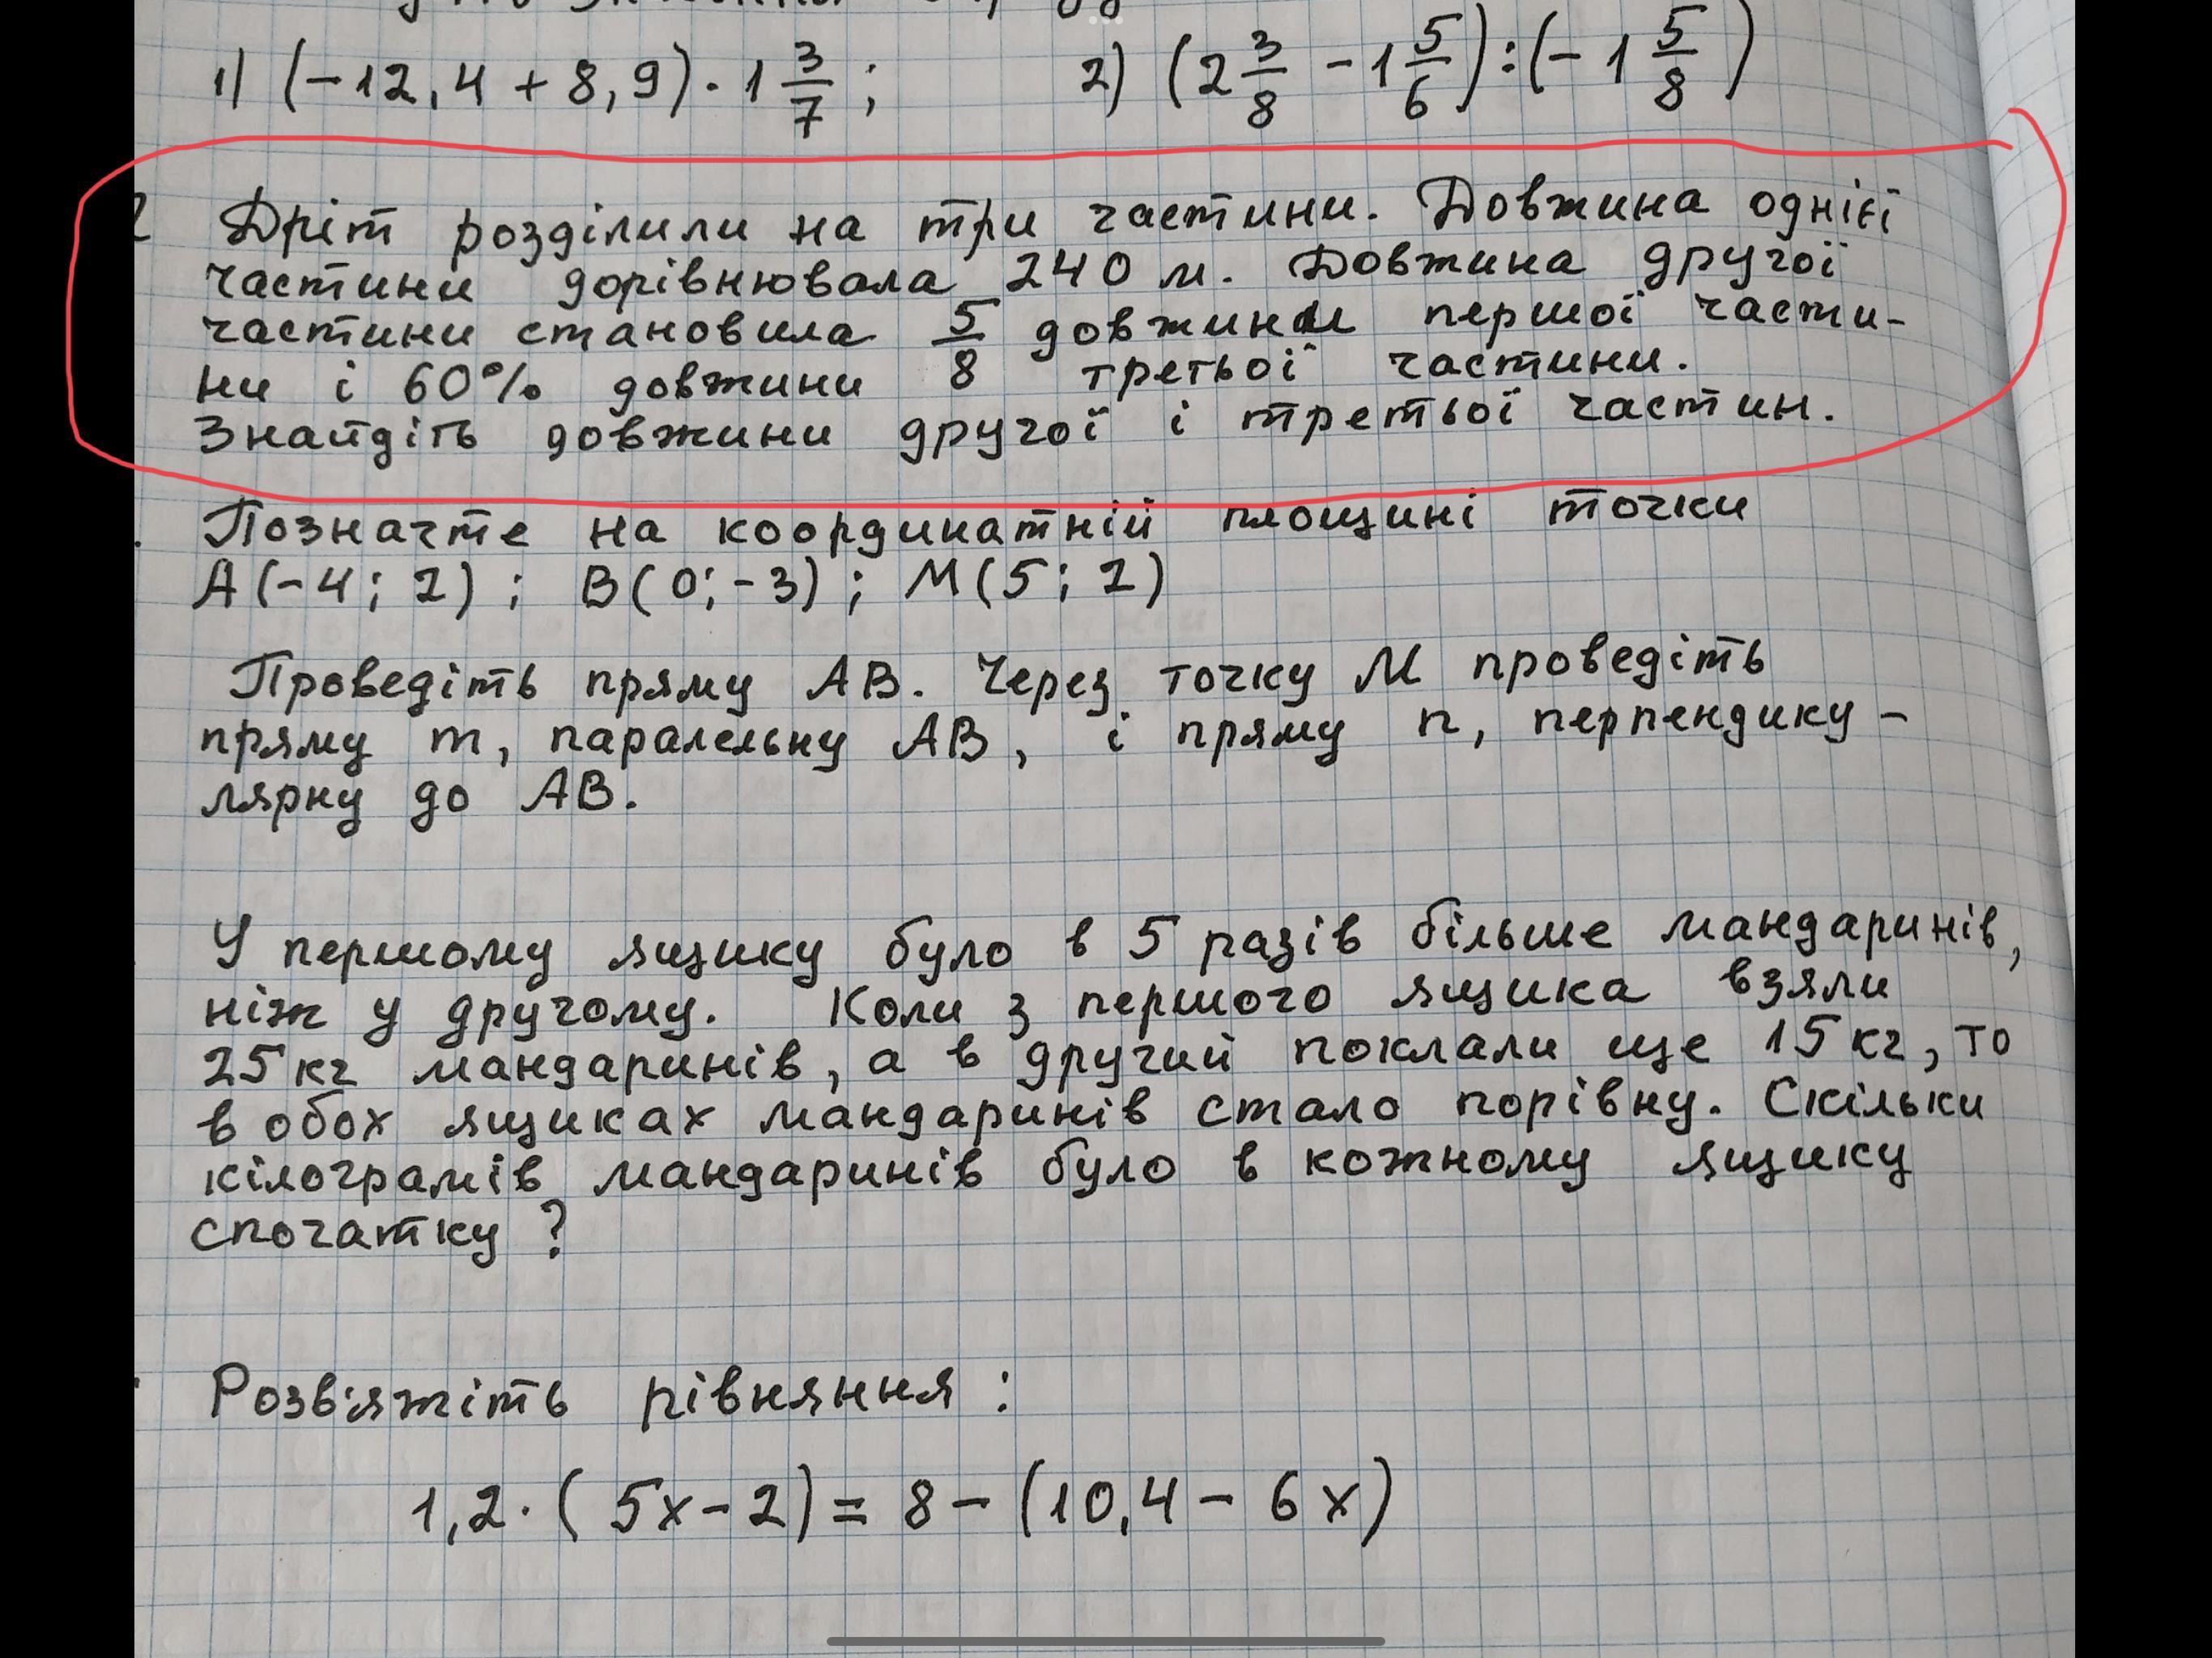 1) (-12,4 + 8,9) · 1 3/7 ; 2) (2 3/8 - 1 5/6) : (- 1 5/8)
2 Дріт розділили на три частини. Довжина однієї
частини дорівнювала 240 м. Довжина другої
частини становила 5/8 довжини першої части-
ни і 60% довжини третьої частини.
Знайдіть довжини другої і третьої частин.
Позначте на координатній площині точки
А(-4; 2) ; В(0; -3) ; М(5; 2)
Проведіть пряму АВ. Через точку М проведіть
пряму m, паралельну АВ, і пряму n, перпендику-
лярну до АВ.
У першому ящику було в 5 разів більше мандаринів,
ніж у другому. Коли з першого ящика взяли
25 кг мандаринів, а в другий поклали ще 15 кг, то
в обох ящиках мандаринів стало порівну. Скільки
кілограмів мандаринів було в кожному ящику
спочатку ?
Розв'яжіть рівняння :
1,2 · (5х - 2) = 8 - (10,4 - 6х)